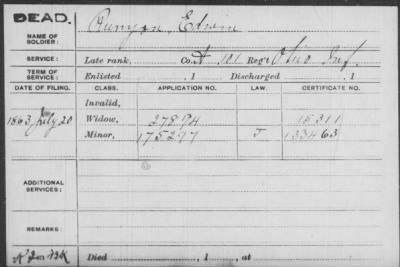 DEAD.
NAME OF SOLDIER: Runyon, Edwin
SERVICE: Late rank, Co. A 101 Reg't Ohio Inf.
TERM OF SERVICE: Enlisted , 1 Discharged , 1
DATE OF FILING. CLASS. APPLICATION NO. LAW. CERTIFICATE NO.
Invalid,
1863 July 20 Widow, 27894 18311
Minor, 175297 J 133463
ADDITIONAL SERVICES:
REMARKS:
Died , 1 , at